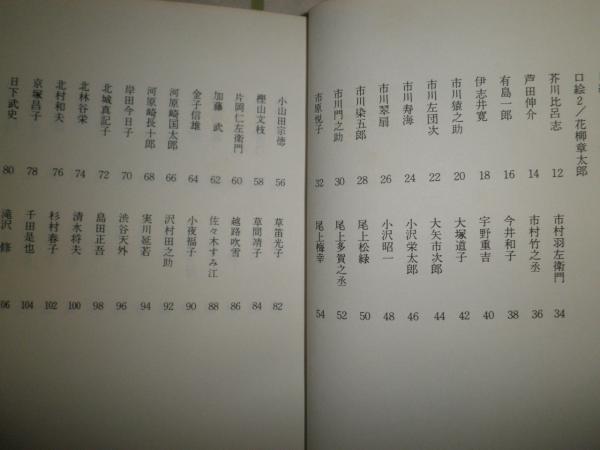 口絵2/花柳章太郎
芥川比呂志 12
芦田伸介 14
有島一郎 16
伊志井寛 18
市川猿之助 20
市川左団次 22
市川寿海 24
市川翠扇 26
市川染五郎 28
市川門之助 30
市原悦子 32
市村羽左衛門 34
市村竹之丞 36
今井和子 38
宇野重吉 40
大塚道子 42
大矢市次郎 44
小沢栄太郎 46
小沢昭一 48
尾上松緑 50
尾上多賀之丞 52
尾上梅幸 54
小山田宗徳 56
樫山文枝 58
片岡仁左衛門 60
加藤武 62
金子信雄 64
河原崎国太郎 66
河原崎長十郎 68
岸田今日子 70
北城真記子 72
北林谷栄 74
北村和夫 76
京塚昌子 78
日下武史 80
草笛光子 82
草間靖子 84
越路吹雪 86
佐々木すみ江 88
小夜福子 90
沢村田之助 92
実川延若 94
渋谷天外 96
島田正吾 98
清水将夫 100
杉村春子 102
千田是也 104
滝沢修 06